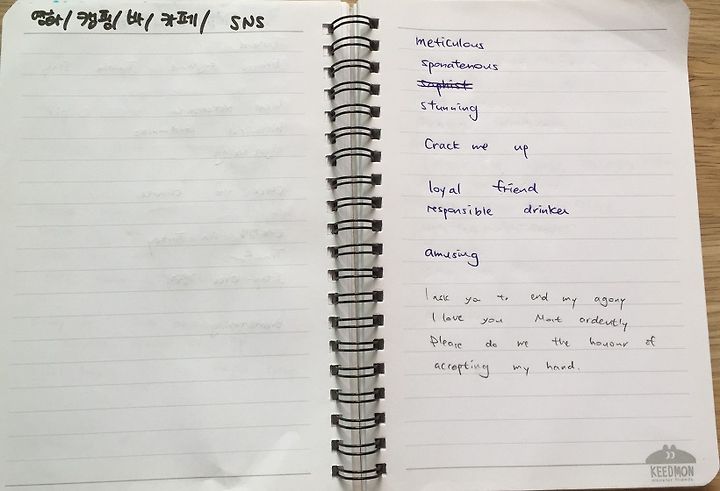 영화/ 캠핑/ 바/ 카페/ SNS
meticulous
sponatenous
sophist
stunning
Crack me up
loyal friend
responsible drinker
amusing
I ask you to end my agony
I love you Most ardently
Please do me the honour of
accepting my hand.
KEEDMON